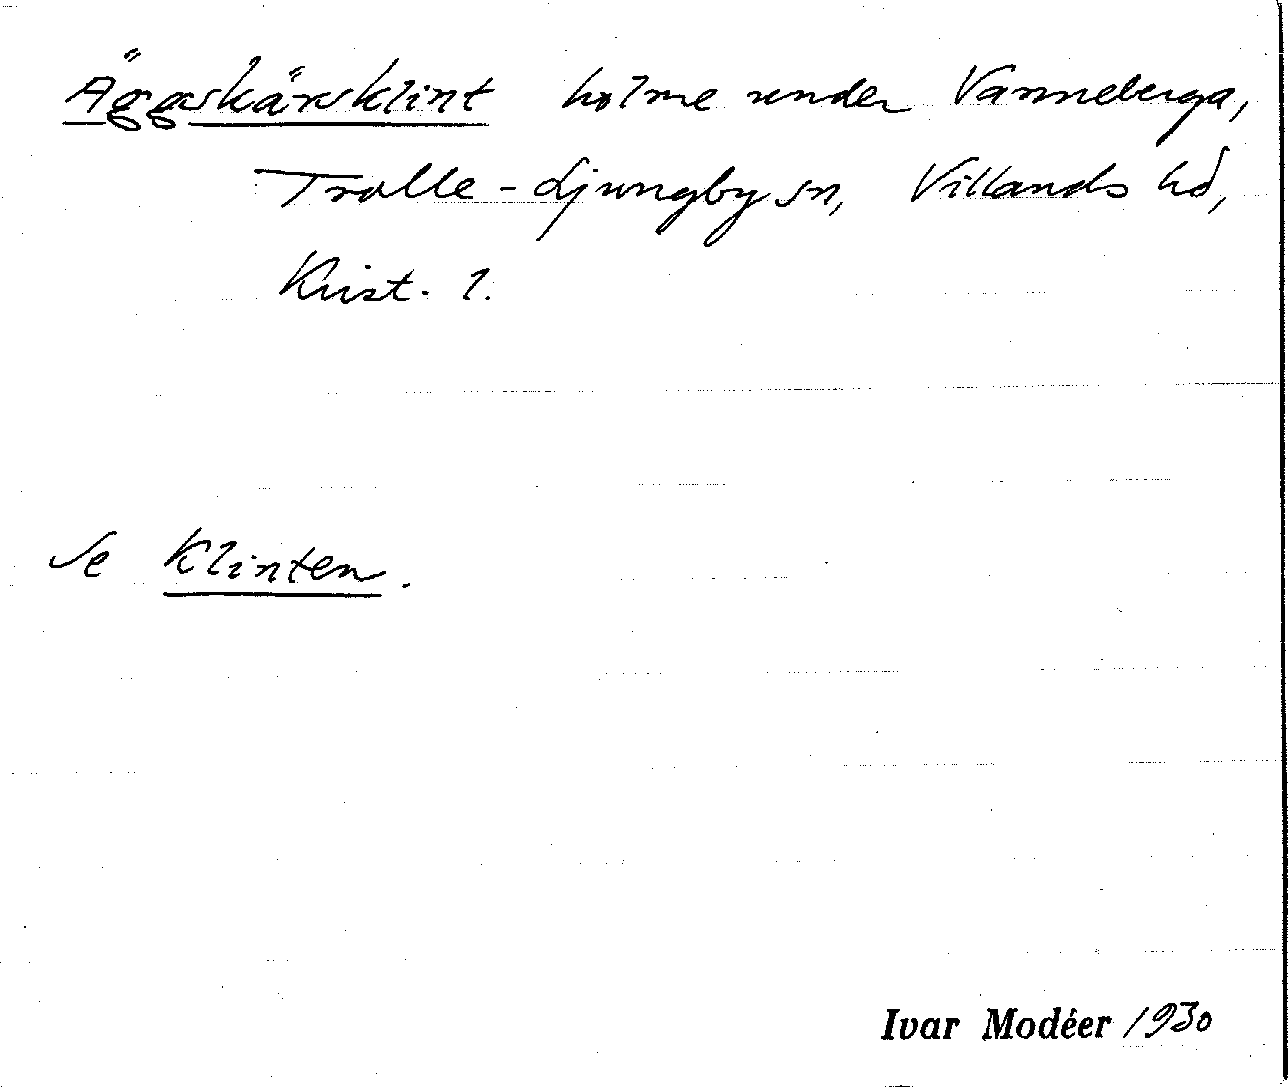 Äggskärsklint holme under Vanneberga,
Trolle-Ljungby sn, Villands hd,
Krist. l.
Se Klinten.
Ivar Modéer 1930